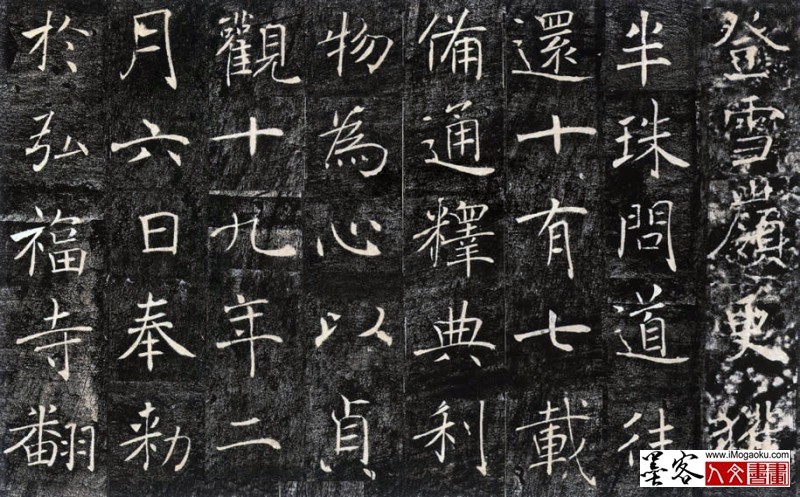 登雪嶺更獲
半珠問道往
還十有七載
備通釋典利
物為心以貞
觀十九年二
月六日奉勑
於弘福寺翻
www.iMogaoku.com
墨客
人文書畫